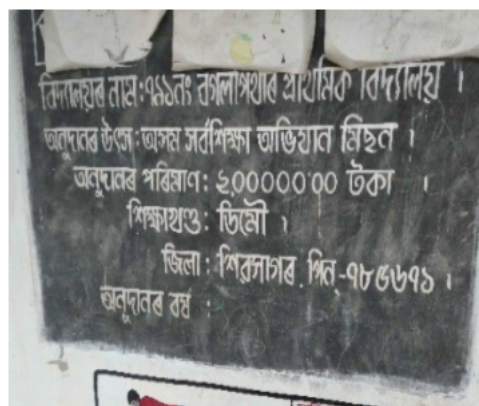 বিদ্যালয়ৰ নাম : ৭৯১নং বগলাপথাৰ প্ৰাথমিক বিদ্যালয় ।
অনুদানৰ উৎস : অসম সৰ্বশিক্ষা অভিযান মিছন ।
অনুদানৰ পৰিমাণ : ২,০০০০০০'০০ টকা ।
শিক্ষাখণ্ড : ডিমৌ ।
জিলা : শিৱসাগৰ . পিন্-৭৮৫৬৭১ ।
অনুদানৰ বৰ্ষ :